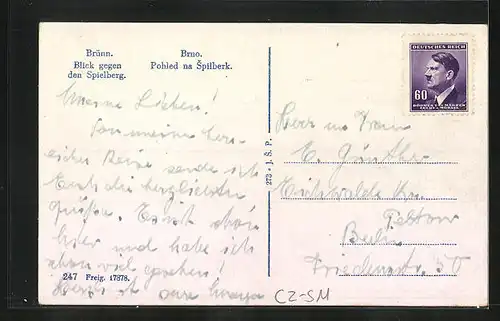 Brünn.
Blick gegen
den Spielberg.
Brno.
Pohled na Špilberk.
DEUTSCHES REICH
60
BÖHMEN UND MÄHREN
ČECHY A MORAVA
Meine Lieben!
Von meiner herr-
lichen Reise sende ich
Euch die herzlichsten
Grüße. Es ist schön
hier und habe ich
schon viel gesehen!
Herzl.
273 • J. Š. P.
Herr und Frau
E. Günther
Eichwalde Kr.
Teltow
Berlin
Friedenstr. 50
247 Freig. 17878.
CZ-SM